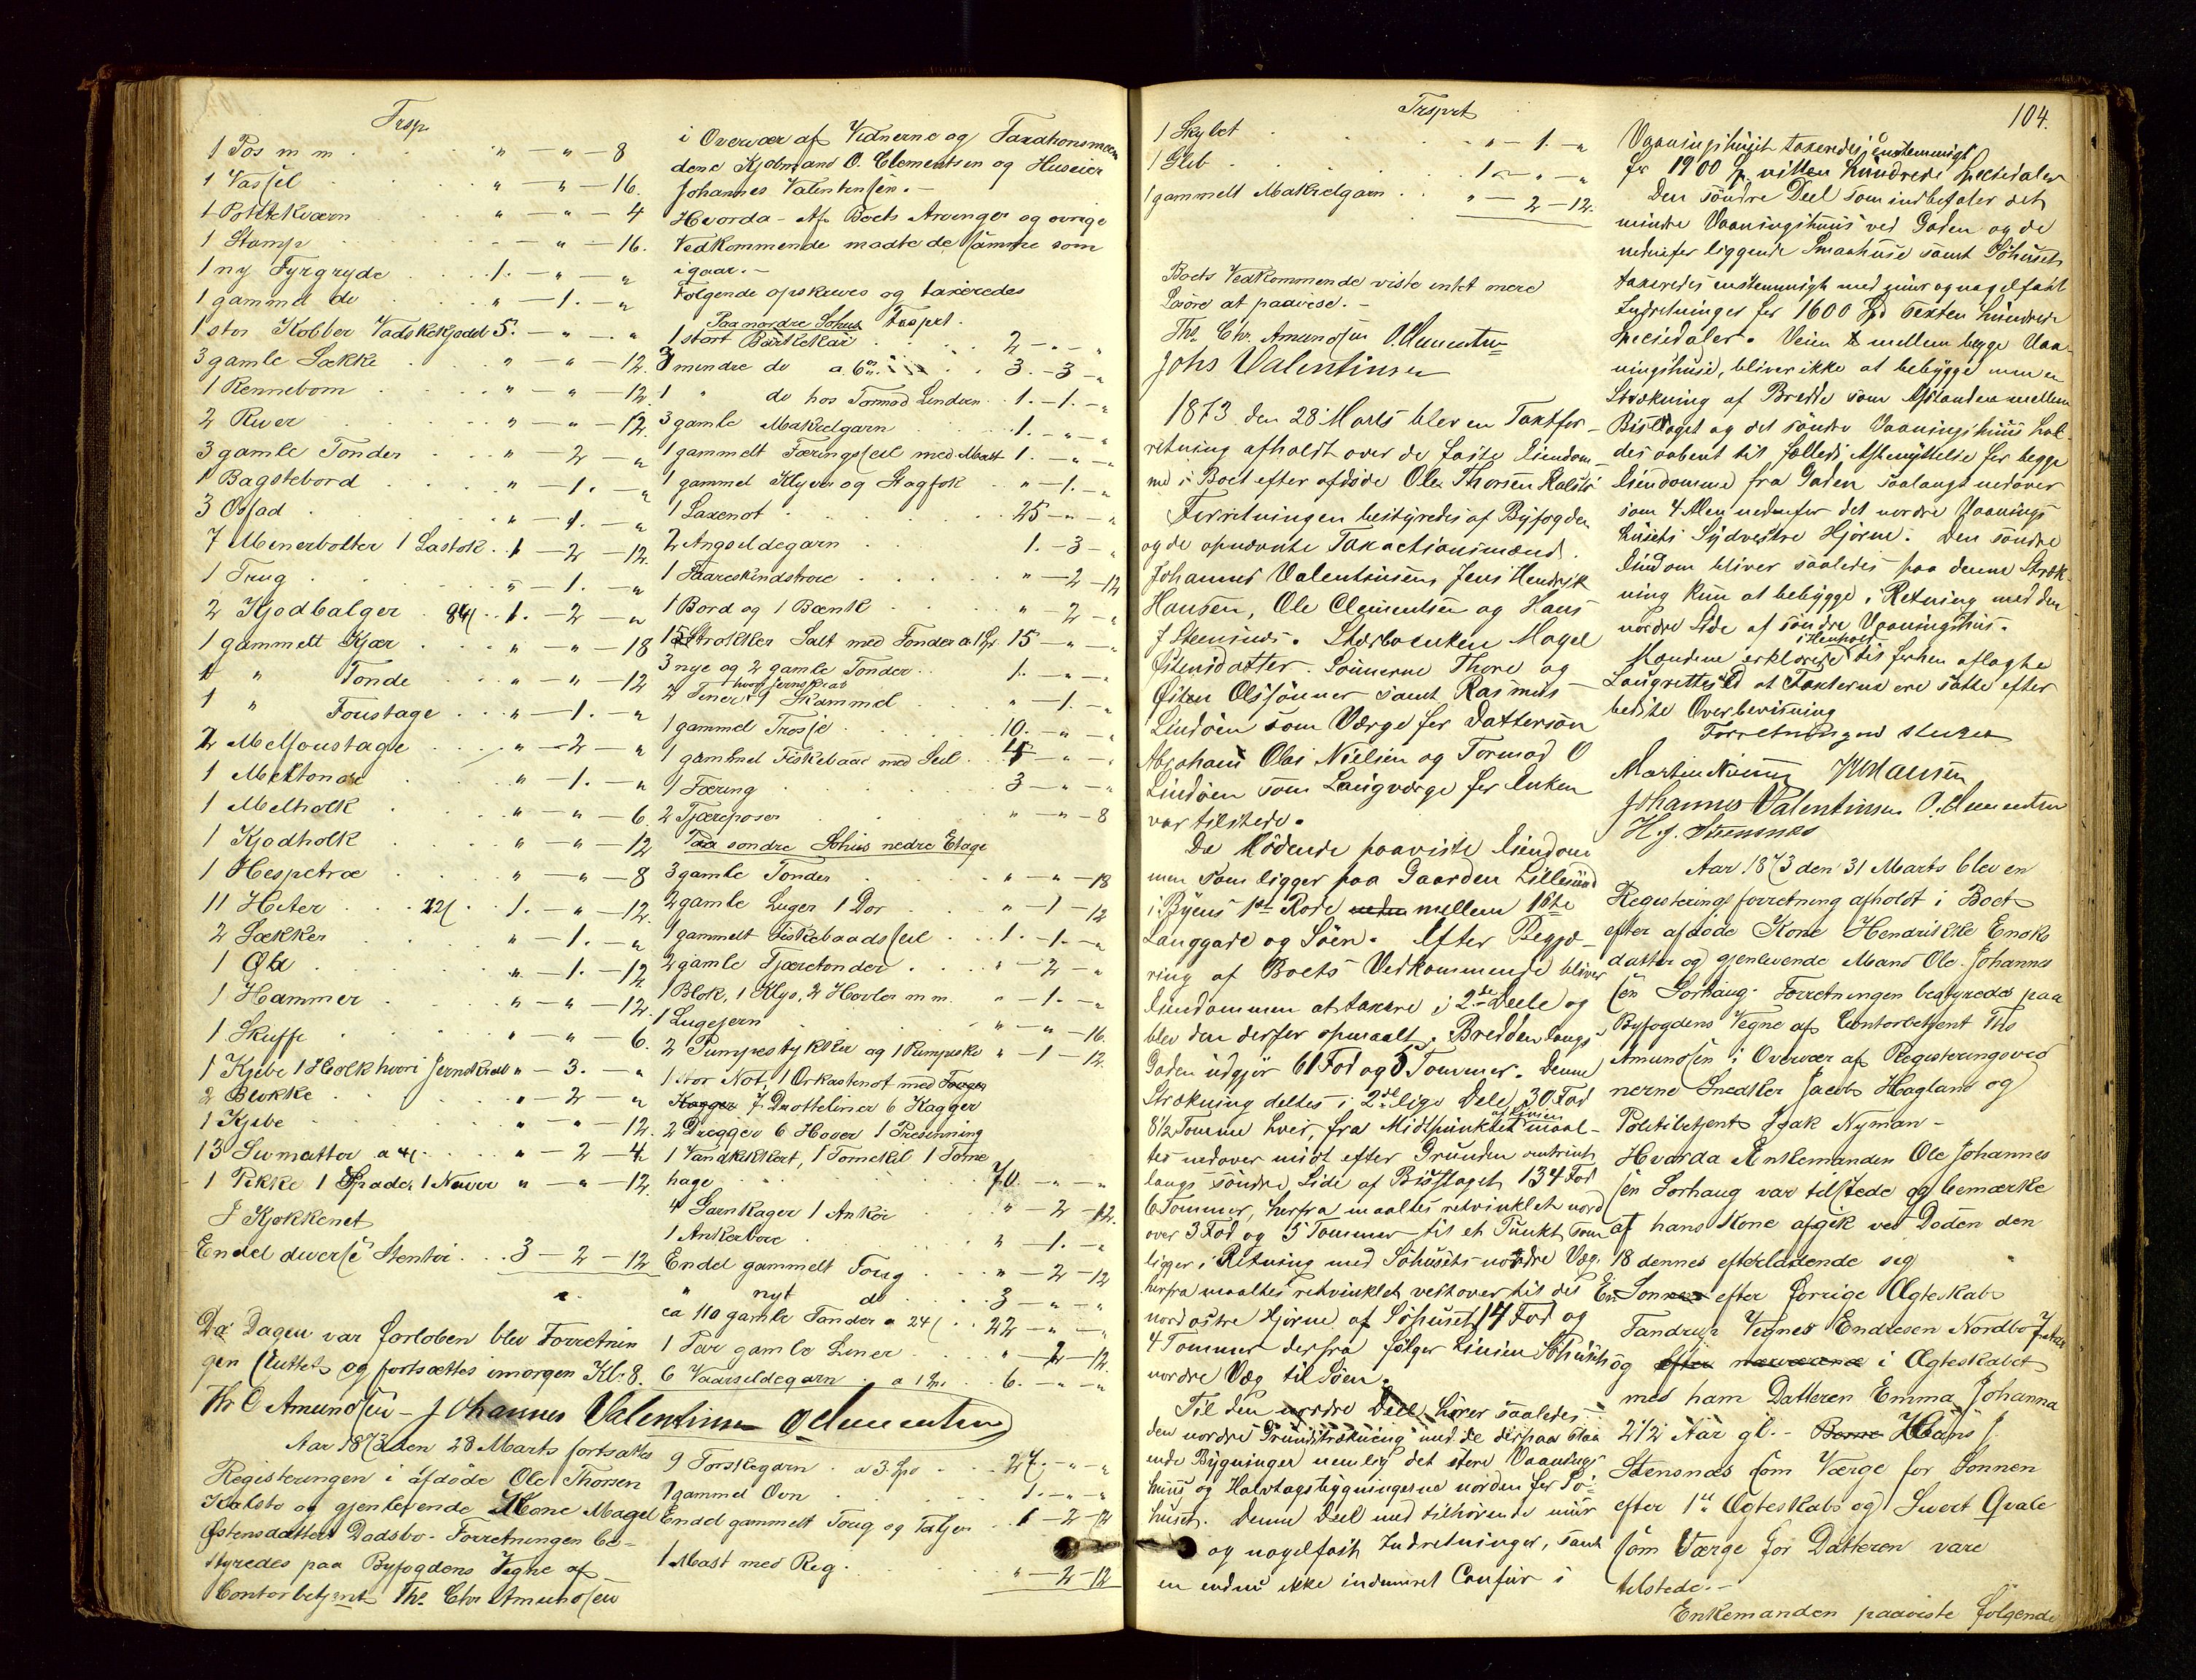 Trsp.
1 Pos m m . . . " — " — 8
1 Vassel . . . " — " — 16.
1 Potetkværn . . . " — " — 4
1 Stamp . . . " — 16.
1 ny Fyrgryde . . . 1. — " — "
1 gammel do . . . " — 1. — "
1 stor Kobber Vadskekjedel 5. — " — "
3 gamle Sække . . . " — " — 12.
1 Rennebom . . . " — " — 12.
2 River . . . " — " — 12.
3 gamle Tonder . . . " — 2 — "
1 Bagstebord . . . " — 1. — "
3 Osfad . . . " — 1. — "
7 Minerbolter 1 Lastok . . 1 — 2 — 12.
1 Trug . . . " — 1. — "
2 Kjodbalger . 84/ . . 1. — 2 — "
1 gammelt Kjær . . . " — " — 18
1 " Tonde . . . " — " — 12
1 " Foustage . . . " — 1. — "
2 Melfoustage . . . " — 2 — "
1 Meltonde . . . " — 1. — "
1 Melholk . . . " — " — 6.
1 Kjodholk . . . " — " — 12
1 Hespetræ . . . " — " — 8
11 Hiter . . . 12/ . . 1. — " — 12.
2 Sækker . . . " — 1. — "
1 Øx . . . " — 1. — 12
1 Hammer . . . " — " — 12.
1 Skuffe . . . " — " — 6.
1 Kjibe 1 Holk hvori Jernskrab " — 3. — "
2 Blokke . . . " — 2 — "
1 Kjibe . . . " — " — 12.
13 Sivmatter a 4/ . . . " — 2 — 4
1 Pikke 1 Spade 1 Naver " — " — 12.
I Kjokkenet
Endel diverse Stentöi . . . 3 — 2 — 12
Da Dagen var forloben blev Forretnin
gen sluttet og fortsættes imorgen Kl. 8.
Th C Amundsen — Johannes Valentinsen O Clementsen
Aar 1873 den 28 Marts fortsattes
Registeringen i afdöde Ole Thorsen
Kalsto og gjenlevende Kone Magel
Østensdatters Dodsbo. Forretningen be-
styredes paa Byfogdens Vegne af
Contorbetjent Th. Chr Amundsen
i Overvær af Vidnerne og Taxationsmæn
dene Kjobmand O. Clementsen og Huseier
Johannes Valentinsen. —
Hvorda — Af Boets Arvinger og ovrige
Vedkommende modte de samme som
igaar. —
Folgende opskreves og taxeredes
Paa nordre Sohus Trsprt.
1 stort Barkekar . . . 2 — " — "
3 mindre do a 6 . . . 3. — 3 — "
1 " do hos Tormod Lindøen . . 1. — 1. — "
3 gamle Makrelgarn . . . 1. — " — "
1 gammelt Færingsseil med Mast 1. — " — "
1 gammel Klyver og Stagfok . . " — 1. — "
1 Laxenot . . . 25 — " — "
2 Angseldegarn . . . 1. — 3 — "
1 Faareskindstroie . . . " — 2 — 12
1 Bord og 1 Bænk . . . " — 2 — "
15 Strokker Salt med Tonder a 1 Sp. 15 — " — "
3 nye og 2 gamle Tonder . . . 1. — " — "
hvori Jernskrab
2 Tiner 9 Skammel . . . " — 1. — "
1 gammel Trosse . . . 10. — " — "
1 gammel Fiskebaad med Seil . . — " — "
1 Færing . . . 3 — " — "
2 Tjæreposer . . . " — " — 8
Paa sondre Sohus nedre Etage
3 gamle Tonder . . . " — " — 18
2 gamle Luger 1 Dor . . . " — 1 — 12
1 gammelt Fiskebaadsseil . . . 1. — 1. — "
2 gamle Tjæretonder . . . " — 2 — "
1 Blok, 1 Klys, 2 Hovler m m . " — 1. — "
1 Lugejern . . . " — " — 16.
2 Pumpestykker og 1 Pumpesko " — 1 — 12.
1 stor Not, 1 Orkastenot med
7 Drotteliner 6 Kagger
2 Drægger 6 Hover 1 Presenning
1 Vandkikkert, 1 Tomekil 1 Tome
hage . . . 70. — " — "
4 Garnkager 1 Anker . . . " — 2 — 12.
1 Ankerbore . . . " — 1. — "
Endel gammelt Toug . . . " — 2 — 12
" nyt do . . . 3 — " — "
ca 110 gamle Tonder a 24/ . . 22 — " — "
1 Par gamle Liner . . . " — 2 — 12.
6 Vaarseldegarn . a 1 Sp. . . 6. — " — "
9 Torskegarn . a 3 Sp . . . 27. — " — "
1 gammel Ovn . . . 1. — " — "
Endel gammelt Toug og Taljer . . 1 — 2 — 12
1 Mast med Reg . . . " — 2 — 12
Trsprt
1 Skybet . . . " — 1. — "
1 Gleb . . . 1 — " — "
1 gammelt Makrelgarn . . . " — 2 — 12.
Boets Vedkommende viste intet mere
Losöre at paavise. —
Th. Chr. Amundsen O. Clementsen
Johs Valentinsen
1873 den 28 Marts blev en Taxtfor-
retning afholdt over de faste Eiendom-
me i Boet efter afdöde Ole Thorsen Kalstö
Forretningen bestyredes af Byfogden
og de opnævnte Taxationsmænd.
Johannes Valentinsen, Jens Hendrik
Hansen, Ole Clementsen og Hans
J Steensnes. Stervboenken Magel
Østensdatter. Sönnerne Thore og
Østen Olssönner samt Rasmus
Lindøen som Værge for Dattersön
Abraham Olai Nielsen og Tormod O
Lindøen som Laugværge for Enken
var tilstede.
De Mödende paaviste Eiendom
men som ligger paa Gaarden Lillesund
i Byens 1ste Rode mellem 16te
Langgade og Söen. Efter Begjæ-
ring af Boets Vedkommende bliver
Eiendommen at taxere i 2de Deele og
blev den derfor opmaalt. Bredden langs
Gaden udgjör 61 Fod og 5 Tommer. Denne
Strækning deltes i 2de lige Dele, 30 Fod
8 1/2 Tomme hver, fra Midtpunktet maal-
tes nedover midt efter Grunden omtrent
langs söndre Side af Bislaget 134 Fod
6 Tommer, herfra maaltes retvinklet nord
over 3 Fod og 5 Tommer til et Punkt som
ligger i Retning med Söhusets nordre Væg.
herfra maaltes retvinklet vestover til det
nordöstre Hjörne af Söhuset 14 Fod og
4 Tommer derfra fölger Linien Söhusets
nordre Væg til Söen.
Til den nordre Deel hörer saaledes
den nordre Grundstrækning med de derpaa staa
ende Bygninger nemlig det störe Vaanings
huus og Halvtagsbygningerne norden for Sö-
huset. Denne Deel med tilhörende muur
og nagelfaste Indretninger, samt
en endnu ikke indmuret Comfur i
104.
Vaaningshuset taxeredes enstemmigt
for 1900 Sp. nitten hundrede Speciedaler
Den söndre Deel som indbefatter det
mindre Vaaningshuus ved Gaden og de
nedenfor liggende Smaahuse samt Söhuset
taxeredes enstemmigt med muur og nagelfaste
Indretninger for 1600 Spd Sexten hundrede
Speciedaler. Veien mellem begge Vaa-
ningshuse, bliver ikke at bebygge men en
Strækning af Bredde som Afstanden mellem
Bislaget og det söndre Vaaningshuus hol-
des aabent til fælleds Afbenyttelse for begge
Eiendomme fra Gaden saalangt nedover
som 4 Alen nedenfor det nordre Vaanings
husets Sydvestre Hjörne. Den söndre
Eiendom bliver saaledes paa denne Stræk-
ning kun at bebygge i Retning med den
nordre Side af söndre Vaaningshus.
i Henhold
Mændene erklærede til forhen aflagte
Laugrettesed at Taxterne ere satte efter
bedste Overbevisning
Forretningen sluttet
Martin Nissen JHHansen
Johannes Valentinsen O. Clementsen
H. J. Steensnes
Aar 1873 den 31 Marts blev en
Registeringsforretning afholdt i Boet
efter afdöde Kone Hendrikke Enoks
datter og gjenlevende Mand Ole Johannes
sen Sorhaug. Forretningen bestyredes paa
Byfogdens Vegne af Contorbetjent Th.
Amundsen i Overvær af Registeringsvid
nerne Snedker Jacob Hagland og
Politibetjent Isak Nyman —
Hvorda Enkemanden Ole Johannes
sen Sorhaug var tilstede og bemærke
af hans Kone afgik ved Doden den
18 dennes efterladende sig
En Son efter forrige Ægteskab
Tandrup Vegner Endresen Nordbo
og i Ægteskabet
med ham Datteren Emma Johanna
2 1/2 Aar gl. — Hans J.
Stensnæs som Værge for Sonnen
efter 1ste Ægteskab og Sivert Qvale
som Værge for Datteren vare
tilstede. —
Enkemanden paaviste folgende